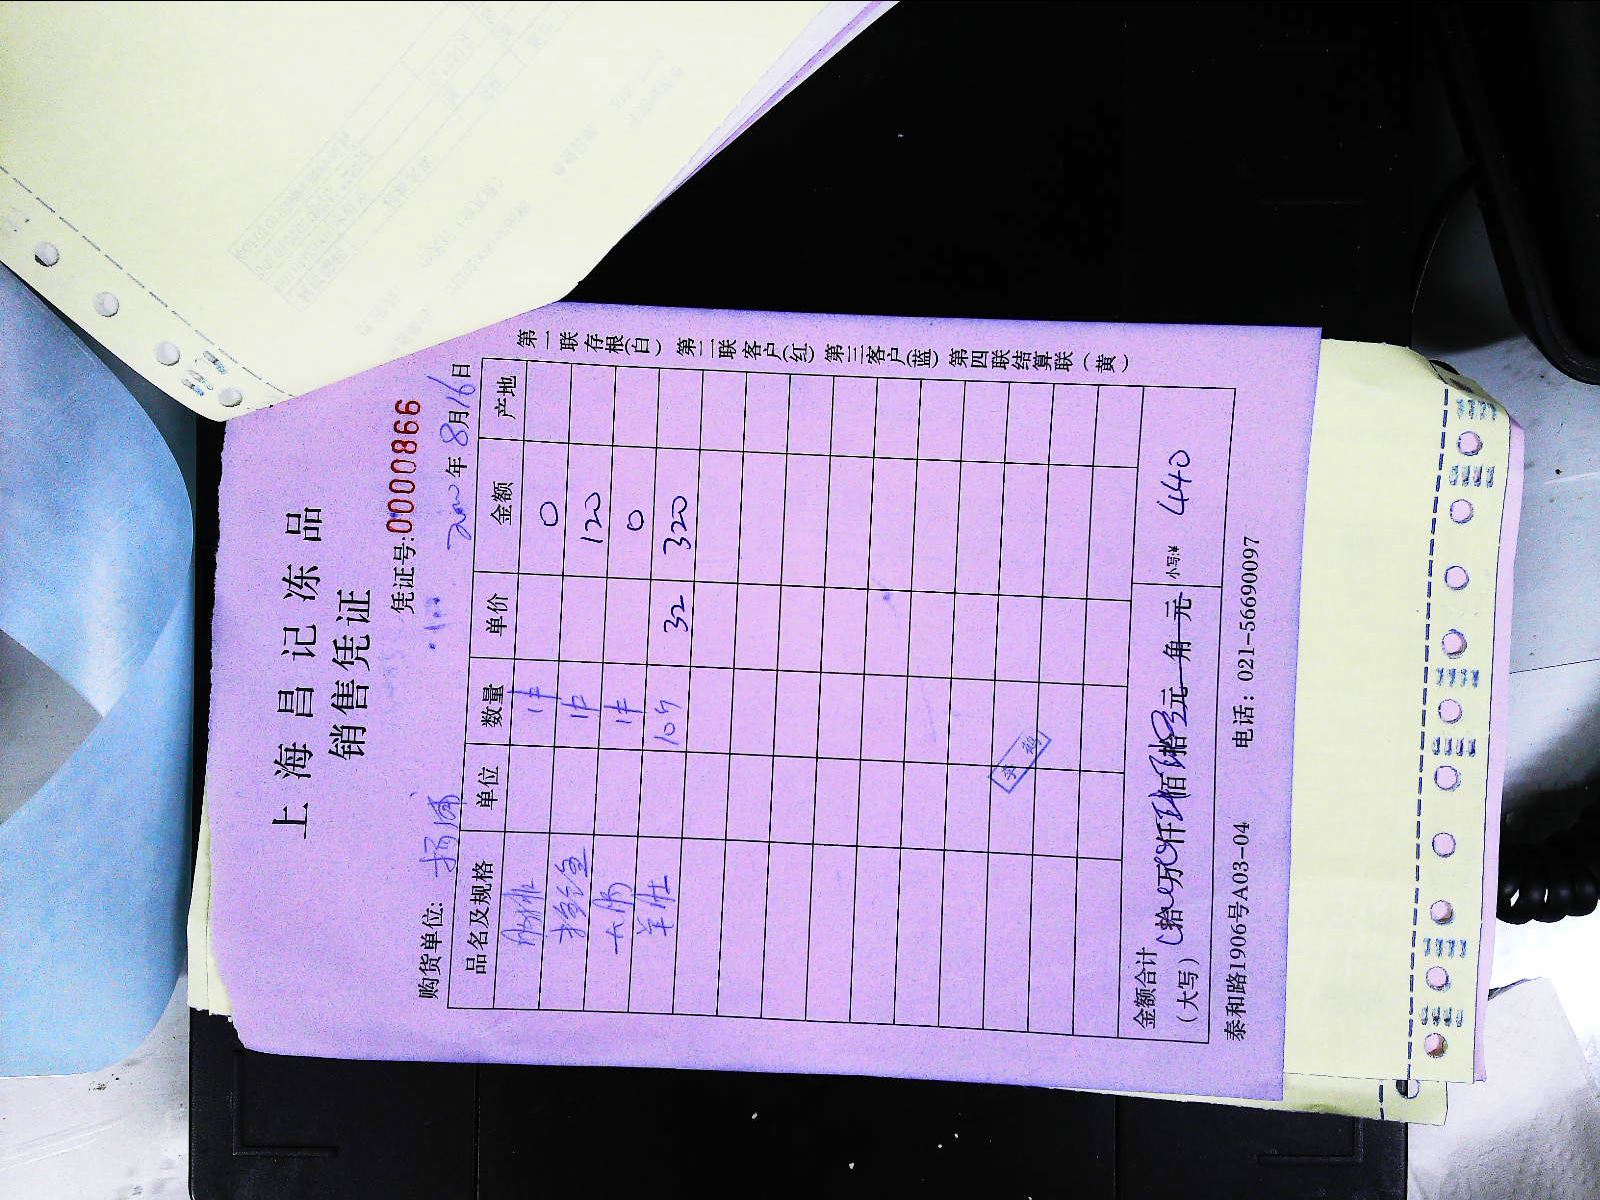 上海昌记冻品
销售凭证
凭证号:0000866
购货单位: 杨浦 年8月16日
品名及规格 单位 数量 单价 金额 产地
1件 0
1件 120
大肠 1件 0
羊肚 10斤 32 320
金额合计（大写） 拾 万 仟 佰 拾 元 角 元 小写:¥ 440
泰和路1906号A03-04 电话：021-56690097
第一联存根(白) 第二联客户(红) 第三客户(蓝) 第四联结算联(黄)